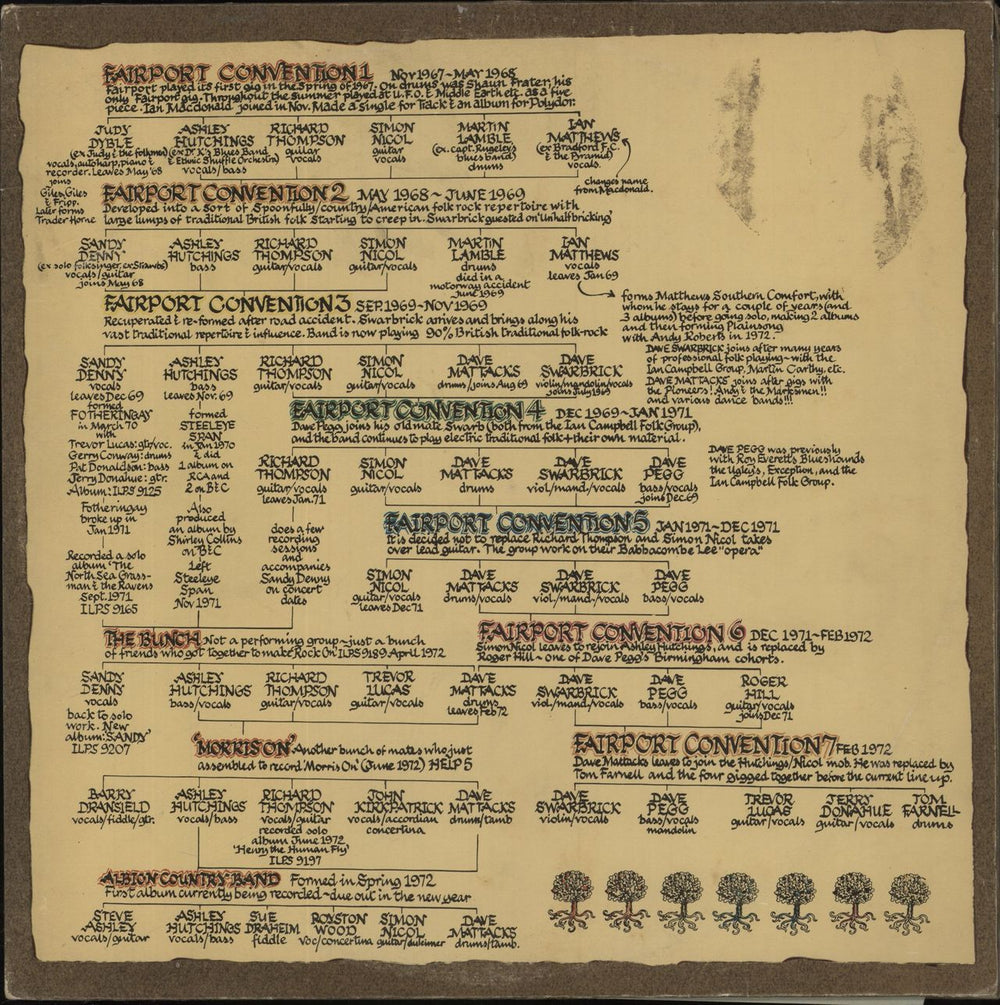 FAIRPORT CONVENTION 1 NOV 1967~MAY 1968
Fairport played its first gig in the Spring of 1967. On drums was Shaun Frater, his
only Fairport gig. Throughout the summer played at U.F.O. & Middle Earth etc. as a five
piece. Ian Macdonald joined in Nov. Made a single for Track & an album for Polydor.
JUDY DYBLE
(ex Judy & the folkmen)
vocals, autoharp, piano &
recorder. Leaves May '68
joins
Giles, Giles
& Fripp.
Later forms
Trader Horne
ASHLEY HUTCHINGS
(ex Dr. K's Blues Band
& Ethnic Shuffle Orchestra)
vocals/bass
RICHARD THOMPSON
guitar
vocals
SIMON NICOL
guitar
vocals
MARTIN LAMBLE
(ex. capt. Rugeley's
blues band)
drums
IAN MATTHEWS
(ex Bradford F.C.
& the Pyramid)
vocals.
changes name
from Macdonald.
FAIRPORT CONVENTION 2 MAY 1968~JUNE 1969
Developed into a sort of Spoonfully/country/American folk rock repertoire with
large lumps of traditional British folk starting to creep in. Swarbrick guested on 'Unhalfbricking'
SANDY DENNY
(ex solo folksinger, ex Strawbs)
vocals/guitar
joins May 68
ASHLEY HUTCHINGS
bass
RICHARD THOMPSON
guitar/vocals
SIMON NICOL
guitar/vocals
MARTIN LAMBLE
drums
died in a
motorway accident
June 1969
IAN MATTHEWS
vocals
leaves Jan 69
forms Matthews Southern Comfort, with
whom he stays for a couple of years (and
3 albums) before going solo, making 2 albums
and then forming Plainsong
with Andy Roberts in 1972.
FAIRPORT CONVENTION 3 SEP. 1969~NOV 1969
Recuperated & re-formed after road accident. Swarbrick arrives and brings along his
vast traditional repertoire & influence. Band is now playing 90% British traditional folk-rock
DAVE SWARBRICK joins after many years
of professional folk playing~with the
Ian Campbell Group, Martin Carthy, etc.
DAVE MATTACKS joins after gigs with
the Pioneers! Andy & the Marksmen!!
and various dance bands!!!
SANDY DENNY
vocals
leaves Dec 69
formed
FOTHERINGAY
in March 70
with
Trevor Lucas: gtr/voc.
Gerry Conway: drums
Pat Donaldson: bass
Jerry Donahue: gtr.
Album: ILPS 9125
Fotheringay
broke up in
Jan 1971
Recorded a solo
album 'The
North Sea Grass-
man & the Ravens
Sept. 1971
ILPS 9165
ASHLEY HUTCHINGS
bass
leaves Nov. 69
formed
STEELEYE
SPAN
in Jan 1970
& did
1 album on
RCA and
2 on B&C
Also
produced
an album by
Shirley Collins
on B&C
Left
Steeleye
Span
Nov 1971
RICHARD THOMPSON
guitar/vocals
SIMON NICOL
guitar/vocals
DAVE MATTACKS
drums/joins Aug 69
DAVE SWARBRICK
violin/mandolin/vocals
joins July 1969
FAIRPORT CONVENTION 4 DEC 1969~JAN 1971
Dave Pegg joins his old mate Swarb (both from the Ian Campbell Folk Group),
and the band continues to play electric traditional folk + their own material.
DAVE PEGG was previously
with Roy Everett's Blueshounds
the Ugley's, Exception, and the
Ian Campbell Folk Group.
RICHARD THOMPSON
guitar/vocals
leaves Jan. 71
does a few
recording
sessions
and
accompanies
Sandy Denny
on concert
dates
SIMON NICOL
guitar/vocals
DAVE MATTACKS
drums
DAVE SWARBRICK
viol/mand/vocals
DAVE PEGG
bass/vocals
joins Dec. 69
FAIRPORT CONVENTION 5 JAN 1971~DEC 1971
It is decided not to replace Richard Thompson and Simon Nicol takes
over lead guitar. The group work on their Babbacombe Lee "opera"
SIMON NICOL
guitar/vocals
leaves Dec 71
DAVE MATTACKS
drums/vocals
DAVE SWARBRICK
viol./mand/vocals
DAVE PEGG
bass/vocals
THE BUNCH Not a performing group~just a bunch
of friends who got together to make 'Rock On' ILPS 9189 April 1972
SANDY DENNY
vocals
back to solo
work. New
album: 'SANDY'
ILPS 9207
ASHLEY HUTCHINGS
bass/vocals
RICHARD THOMPSON
guitar/vocals
TREVOR LUCAS
guitar/vocals
DAVE MATTACKS
drums
leaves Feb 72
FAIRPORT CONVENTION 6 DEC 1971~FEB 1972
Simon Nicol leaves to rejoin Ashley Hutchings, and is replaced by
Roger Hill~one of Dave Pegg's Birmingham cohorts.
DAVE SWARBRICK
viol/mand/vocals
DAVE PEGG
bass/vocals
ROGER HILL
guitar/vocals
joins Dec 71
'MORRIS ON' Another bunch of mates who just
assembled to record 'Morris On' (June 1972) HELP 5
BARRY DRANSFIELD
vocals/fiddle/gtr.
ASHLEY HUTCHINGS
vocals/bass
RICHARD THOMPSON
vocals/guitar
recorded solo
album June 1972
'Henry the Human Fly'
ILPS 9197
JOHN KIRKPATRICK
vocals/accordian
concertina
DAVE MATTACKS
drums/tamb
FAIRPORT CONVENTION 7 FEB 1972
Dave Mattacks leaves to join the Hutchings/Nicol mob. He was replaced by
Tom Farnell and the four gigged together before the current line up.
DAVE SWARBRICK
violin/vocals
DAVE PEGG
bass/vocals
mandolin
TREVOR LUCAS
guitar/vocals
JERRY DONAHUE
guitar/vocals
TOM FARNELL
drums
ALBION COUNTRY BAND Formed in Spring 1972
First album currently being recorded~due out in the new year
STEVE ASHLEY
vocals/guitar
ASHLEY HUTCHINGS
vocals/bass
SUE DRAHEIM
fiddle
ROYSTON WOOD
voc/concertina
SIMON NICOL
guitar/dulcimer
DAVE MATTACKS
drums/tamb.